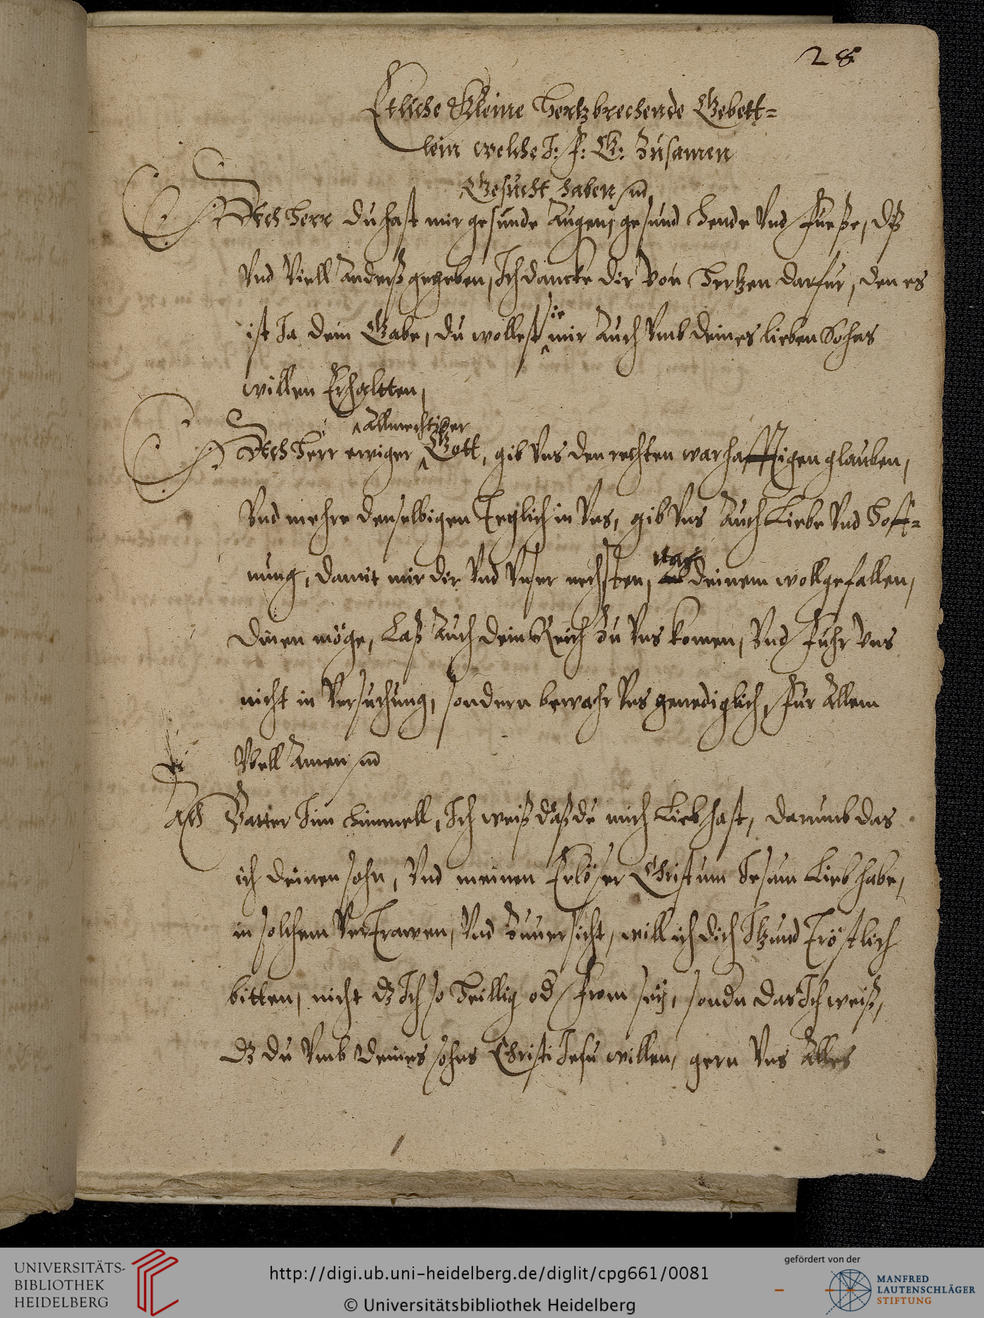 28
Etliche Kleine Hertzbrechende Gebett-
lein welche I: F: G: Zusamen
Gesucht haben
Ach Herr du hast mir gesunde Augen, gesund Hende Vnd Fueße, diß
Vnd Viell Anderß gegeben, Ich dancke dir Von Hertzen darfur, den es
ist Ja dein Gabe, du wollest sie mir Auch Vmb deines lieben Sohns
willen Erhaltten,
Ach Herr ewiger Allmechtiger Gott, gib Vns den rechten warhafftigen glauben,
Vnd mehre denselbigen Teglich in Vns, gib Vns Auch Liebe Vnd Hoff-
nung, damit mir dir Vnd Vnser nechsten, nach deinem wollgefallen,
dinen möge, Laß Auch dein Reich Zu Vns komen, Vnd Fuhr Vns
nicht in Versuchung, sondern bewahr Vns genediglich, Fur Allem
Vbell Amen
Ach Vatter Jm Himmell, Ich weiß daß du mich Lieb hast, darumb das
ich deinen sohn, Vnd meinen Erlöser Christum Jesum Lieb habe,
in solchem Vertrawen, Vnd Zuuersicht, will ich dich Itzund Tröstlich
bitten, nicht dz Ich so Heillig od From seÿ, sondn das Ich weiß,
dz du Vmb deines sohns Christi Jesu willen, gern Vns Alles
UNIVERSITÄTS-
BIBLIOTHEK
HEIDELBERG
http://digi.ub.uni-heidelberg.de/diglit/cpg661/0081
© Universitätsbibliothek Heidelberg
gefördert von der
MANFRED
LAUTENSCHLÄGER
STIFTUNG